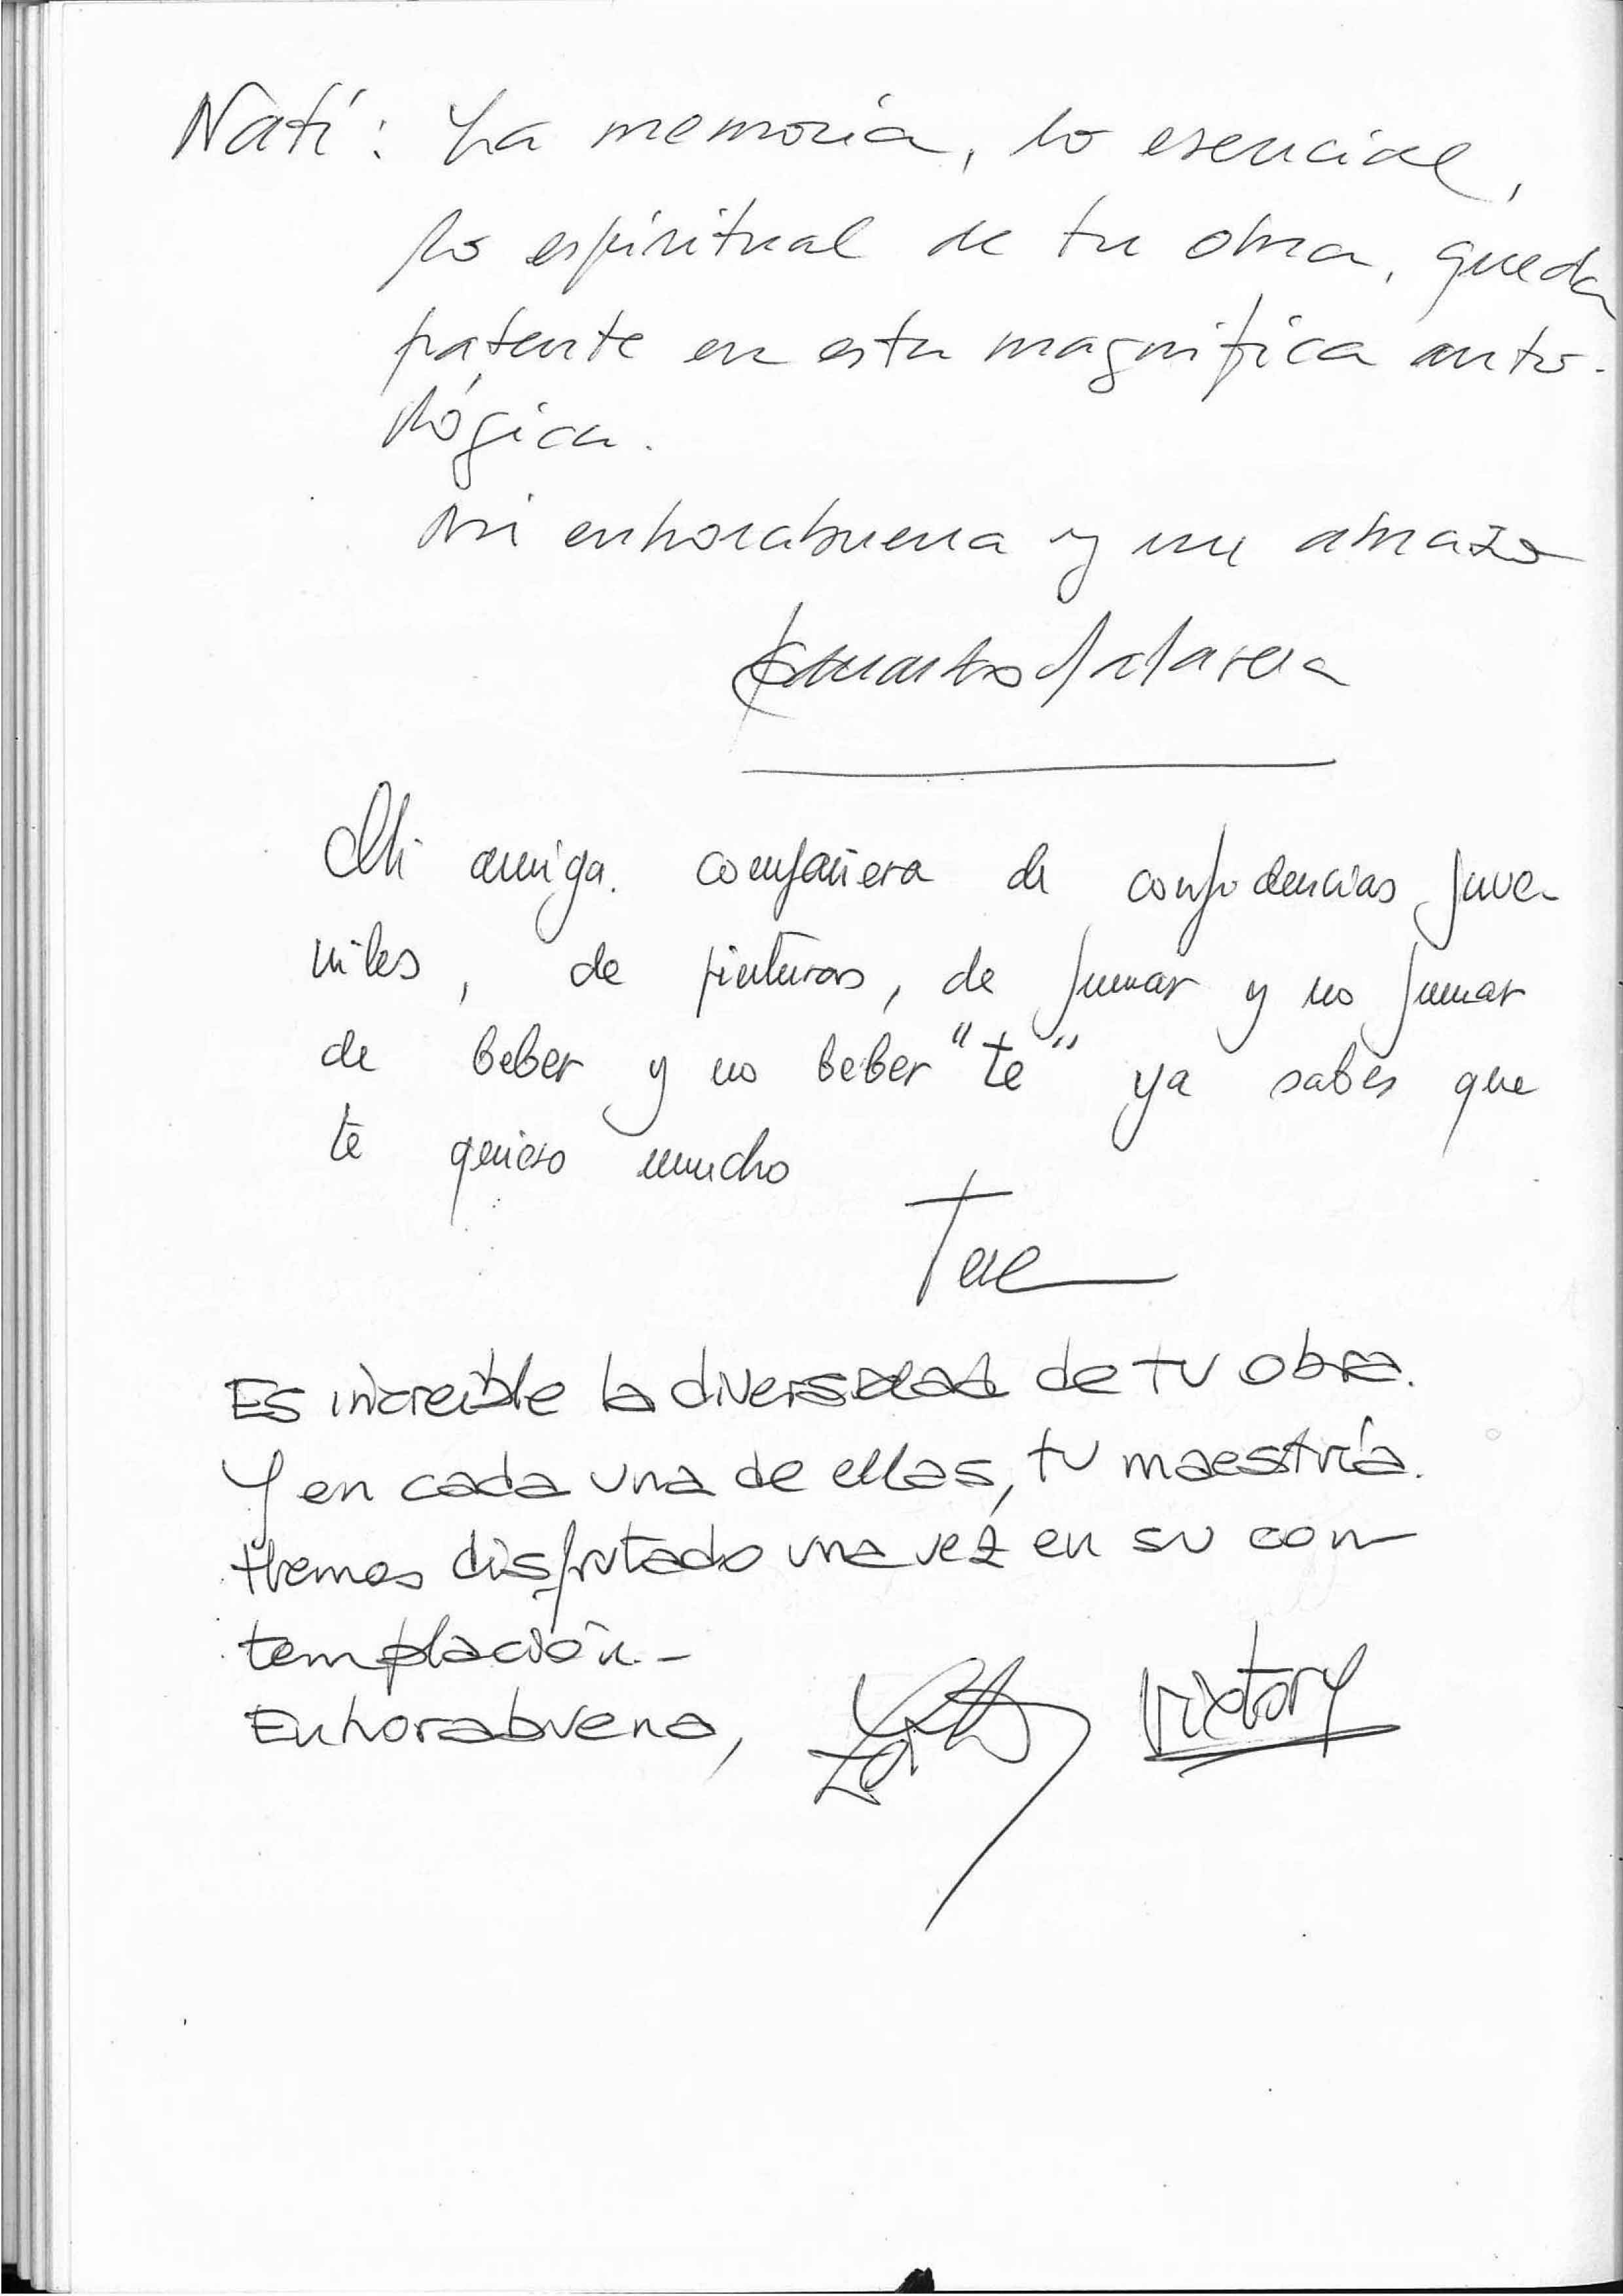 Nati: La memoria, lo esencial,
lo espiritual de tu obra, queda
patente en esta magnífica anto-
lógica.
Mi enhorabuena y un abrazo
Mi amiga. compañera de confidencias juve-
niles, de pinturas, de fumar y no fumar
de beber y no beber "te" ya sabes que
te quiero mucho
Tere
Es increíble la diversidad de tu obra.
Y en cada una de ellas, tu maestría.
Hemos disfrutado una vez en su con-
templación-
Enhorabuena,